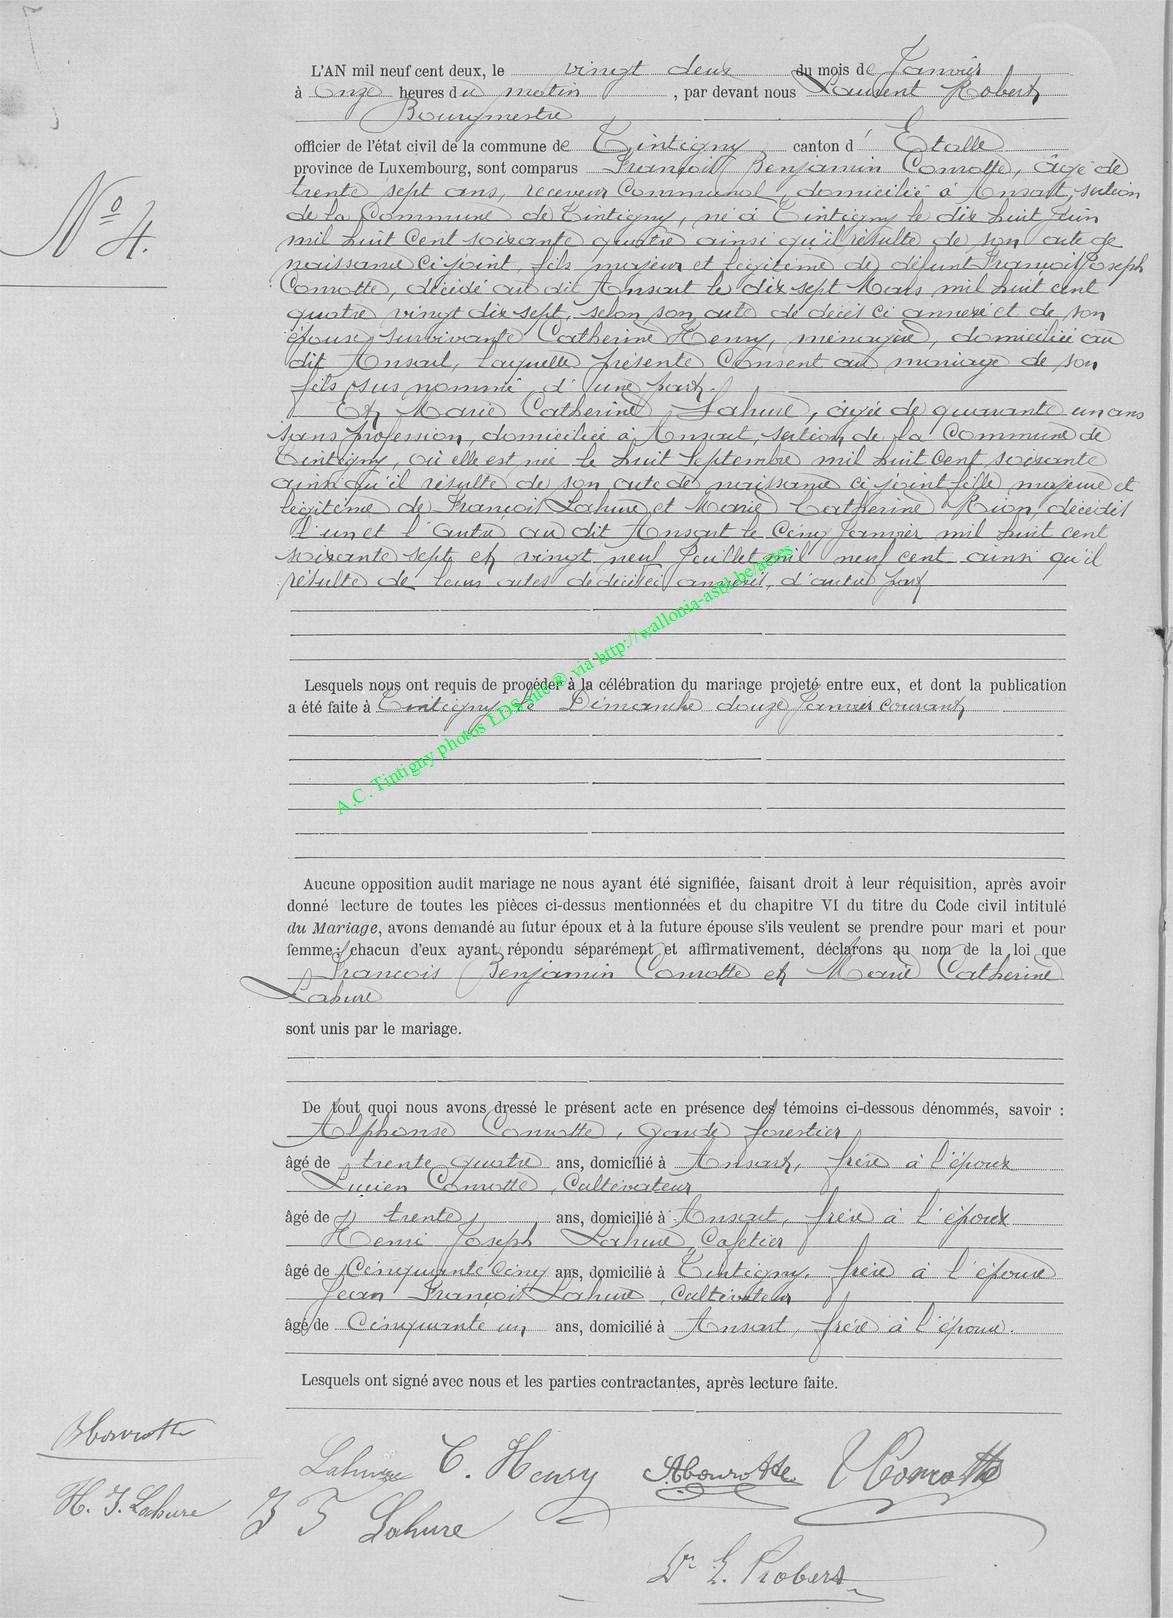 L'AN mil neuf cent deux, le vingt deux du mois de Janvier
à onze heures du matin, par devant nous Laurent Robert
Bourgmestre
officier de l'état civil de la commune de Tintigny canton d'Etalle
province de Luxembourg, sont comparus François Benjamin Conrotte, âgé de
trente sept ans, receveur Communal, domicilié à Ansart, section
de la Commune de Tintigny, né à Tintigny le dix huit Juin
N° 4.
mil huit Cent soixante quatre ainsi qu'il résulte de son acte de
naissance ci joint, fils majeur et légitime de défunt François Joseph
Conrotte, décédé au dit Ansart le dix sept Mars mil huit cent
quatre vingt dix sept, selon son acte de décès ci annexé et de son
épouse survivante Catherine Henry, ménagère, domiciliée au
dit Ansart, laquelle présente Consent au mariage de son
fils sus nommé, d'une part.
Et Marie Catherine Lahure, âgée de quarante un ans
sans profession, domiciliée à Ansart, section de la Commune de
Tintigny, où elle est née le huit Septembre mil huit Cent soixante
ainsi qu'il résulte de son acte de naissance ci joint fille majeure et
légitime de François Lahure et Marie Catherine Rion, décédés
l'un et l'autre au dit Ansart le Cinq Janvier mil huit cent
soixante sept et vingt neuf Juillet mil neuf cent ainsi qu'il
résulte de leurs actes de décès annexés, d'autre part
Lesquels nous ont requis de procéder à la célébration du mariage projeté entre eux, et dont la publication
a été faite à Tintigny le Dimanche douze Janvier courant
A.C. Tintigny photos LDS site © via http://wallonia-asbl.be/actes
Aucune opposition audit mariage ne nous ayant été signifiée, faisant droit à leur réquisition, après avoir
donné lecture de toutes les pièces ci-dessus mentionnées et du chapitre VI du titre du Code civil intitulé
du Mariage, avons demandé au futur époux et à la future épouse s'ils veulent se prendre pour mari et pour
femme; chacun d'eux ayant répondu séparément et affirmativement, déclarons au nom de la loi que
François Benjamin Conrotte et Marie Catherine
Lahure
sont unis par le mariage.
De tout quoi nous avons dressé le présent acte en présence des témoins ci-dessous dénommés, savoir :
Alphonse Conrotte, garde forestier
âgé de trente quatre ans, domicilié à Ansart, frère à l'époux
Lucien Conrotte, Cultivateur
âgé de trente ans, domicilié à Ansart, frère à l'époux
Henri Joseph Lahure, Cafetier
âgé de Cinquante Cinq ans, domicilié à Tintigny, frère à l'épouse
Jean François Lahure, Cultivateur
âgé de Cinquante un ans, domicilié à Ansart, frère à l'épouse.
Lesquels ont signé avec nous et les parties contractantes, après lecture faite.
BConrotte
Lahure C. Henry AConrotte LConrotte
H. J. Lahure J F Lahure
Dr L. Robert